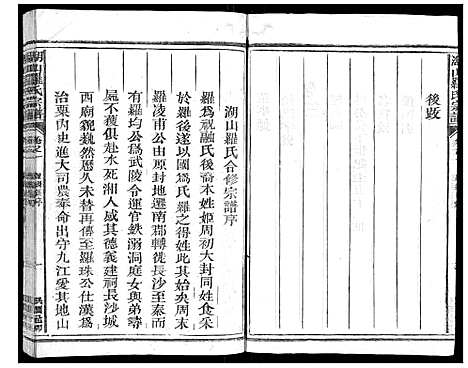 湖山羅氏宗譜
後跋
湖山羅氏合修宗譜序
羅為祝融氏後裔本姓姬周初大封同姓食采
於羅後遂以國為氏羅之得姓此其始矣周末
羅凌甫公由原封地遷南郡轉徙長沙至秦而
有羅均公為武陵令運官鉄溺洞庭女與弟尋
屍不獲俱赴水死湘人感其德義建祠長沙城
西廟貌巍然歷久未替再傳至羅珠公仕漢為
治粟內史進大司農奉命出守九江愛其地山
湖山羅氏宗譜